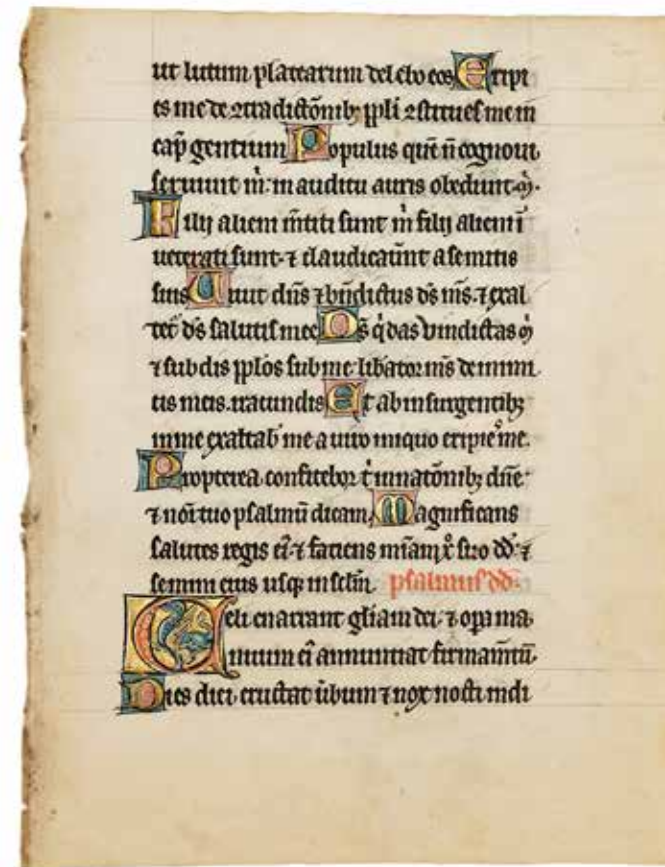 ut lutum platearum delebo eos Eripi
es me de ꝯtradictōnibꝫ ppli ꝯstitues me in
cap̄ gentium Populus quē n̄ cognoui
seruiuit m̄: in auditu auris obediuit m̄.
Filij alieni m̄titi sunt m̄ filij alieni ī
ueterati sunt ⁊ claudicauīt a semitis
suis Uiuit dn̄s ⁊ bn̄dictus ds̄ ms̄ ⁊ exal
tet᷑ ds̄ salutis mee Ds̄ q̇ das vindictas m̄
⁊ subdis pplos sub me libator ms̄ de inim
icis meis iracundis Et ab insurgentibꝫ
in me exaltab me a uiro iniquo eripieͦ me.
Propterea confitebor t̄ in natōnibꝫ dn̄e
⁊ noī tuo psalmū dicam Magnificans
salutes regis eī ⁊ faciens mīam xͦ suo dd̄ ⁊
semini eius usqꝫ in sclm̄. psalmus dd̄.
Celi enarrant gliam dei ⁊ opa ma
nuum eī annuntiat firmam̄tū.
Dies diei eructat ūbum ⁊ nox nocti indi